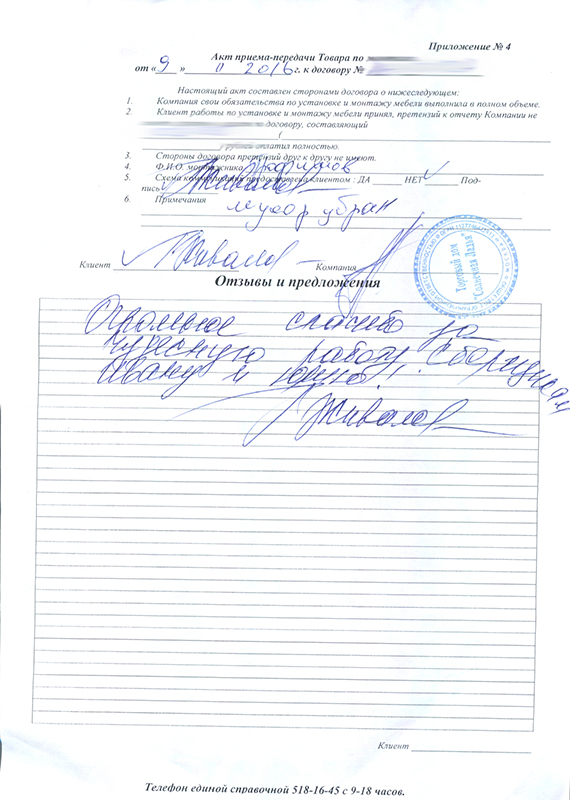 Приложение № 4
Акт приема-передачи Товара по
от «9» 11 2016 г. к договору №
Настоящий акт составлен сторонами договора о нижеследующем:
1. Компания свои обязательства по установке и монтажу мебели выполнила в полном объеме.
2. Клиент работы по установке и монтажу мебели принял, претензий к отчету Компании не
договору, составляющий
(
) рублей оплатил полностью.
3. Стороны договора претензий друг к другу не имеют.
4. Ф.И.О. монтажника
5. Схема коммуникаций предоставлена клиентом : ДА НЕТ Под-
пись
6. Примечания мусор убран
Клиент Компания
Торговый дом
Отзывы и предложения
Огромное спасибо за
чудесную работу сборщикам
Клиент
Телефон единой справочной 518-16-45 с 9-18 часов.